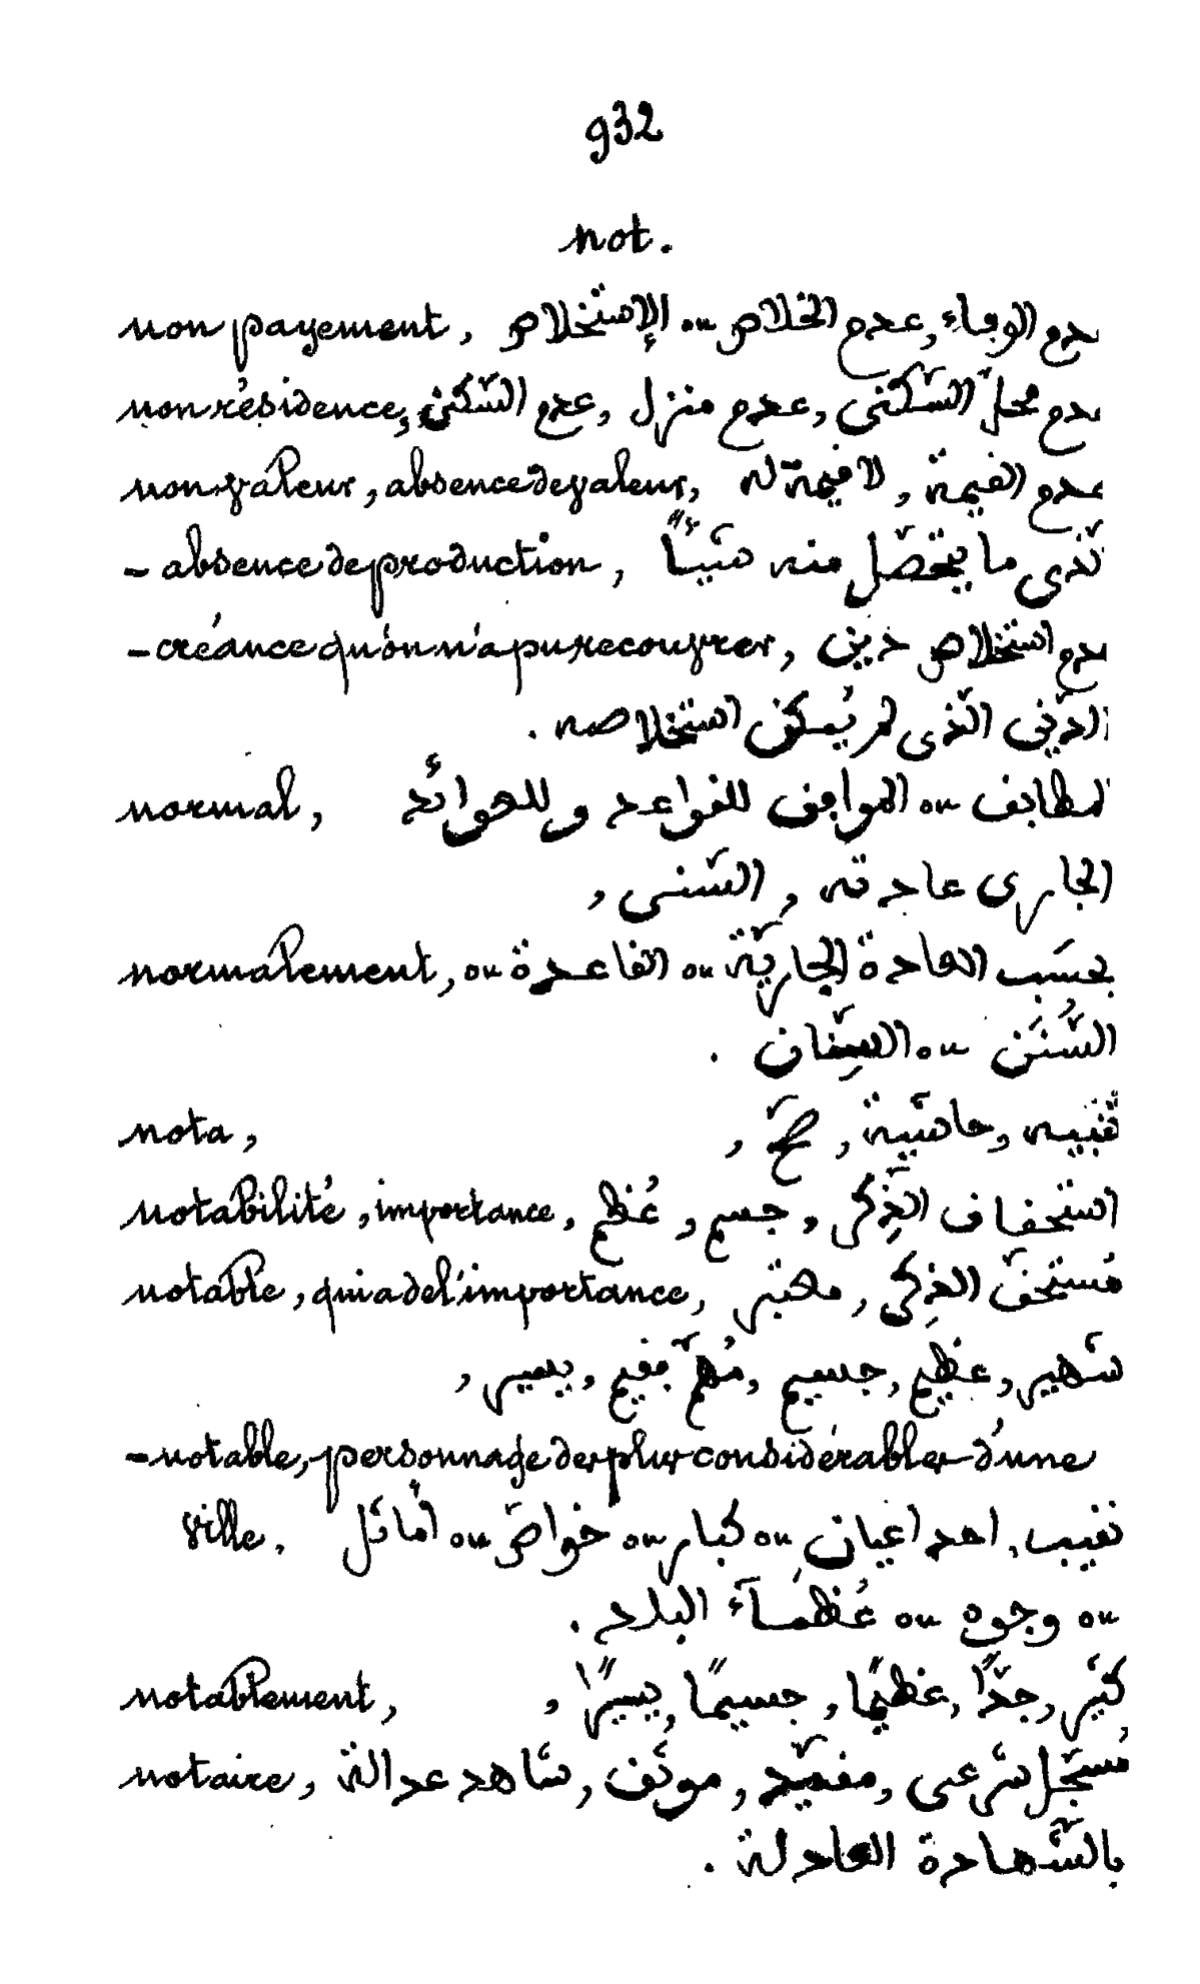 932
not.
non payement, عدم الوفاء, عدم الخلاص ou الإستخلاص
non résidence, عدم محلّ السّكنى, عدم منزل, عدم السّكنى
non valeur, absence de valeur, عدم القيمة, لا قيمة له
- absence de production, الّذى ما يتحصّل منه شيئًا
- créance qu'on n'a pu recouvrer, عدم استخلاص دين
الدّين الّذى لم يُمكن استخلاصه.
normal, المطابق ou الموافق للقواعد وللعوائد
الجارى عادته, السّنى,
normalement, بحسَب العادة الجاريّة ou القاعدة ou
السُّنَن ou .
nota, تنبيه, حاشية, صحّ,
notabilité, importance, استحقاق الذِّكر, جسم, عُظم
notable, qui a de l'importance, مُستحقّ الذِّكر, معتبر
شهير, عظيم, جسيم, مُهمّ,
- notable, personnage des plus considérables d'une
ville. نقيب, احد اعيان ou كبار ou خواصّ ou أماثل
ou وجوه ou عُظمآء البلاد.
notablement, كثير, جدًّا, عظيمًا, جسيمًا,
notaire, مُسجّل شرعى, موثّق, شاهد عدالة
بالشّهادة العادلة.